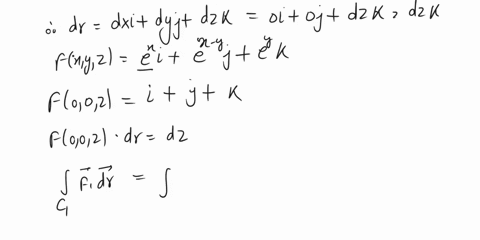 ∴ dr = dxi + dyj + dzk = 0i + 0j + dzk, dzk
F(x,y,z) = e^x i + e^{x-y} j + e^y k
F(0,0,z) = i + j + k
F(0,0,z) · dr = dz
∫_{C₁} F⃗. dr⃗ = ∫